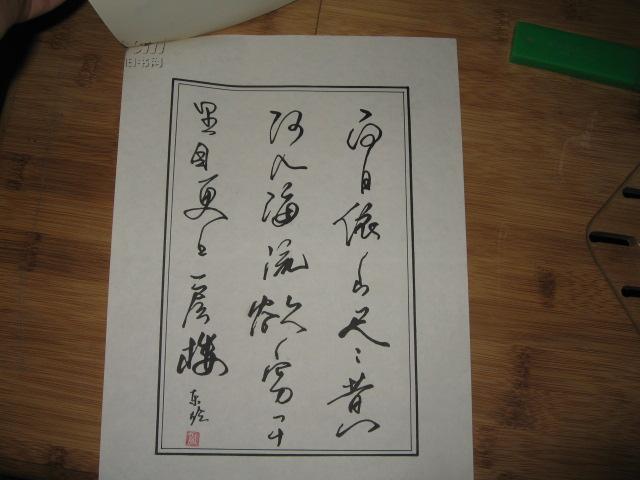 白日依山尽黄
河入海流欲穷千
里目更上一层楼
旧书网